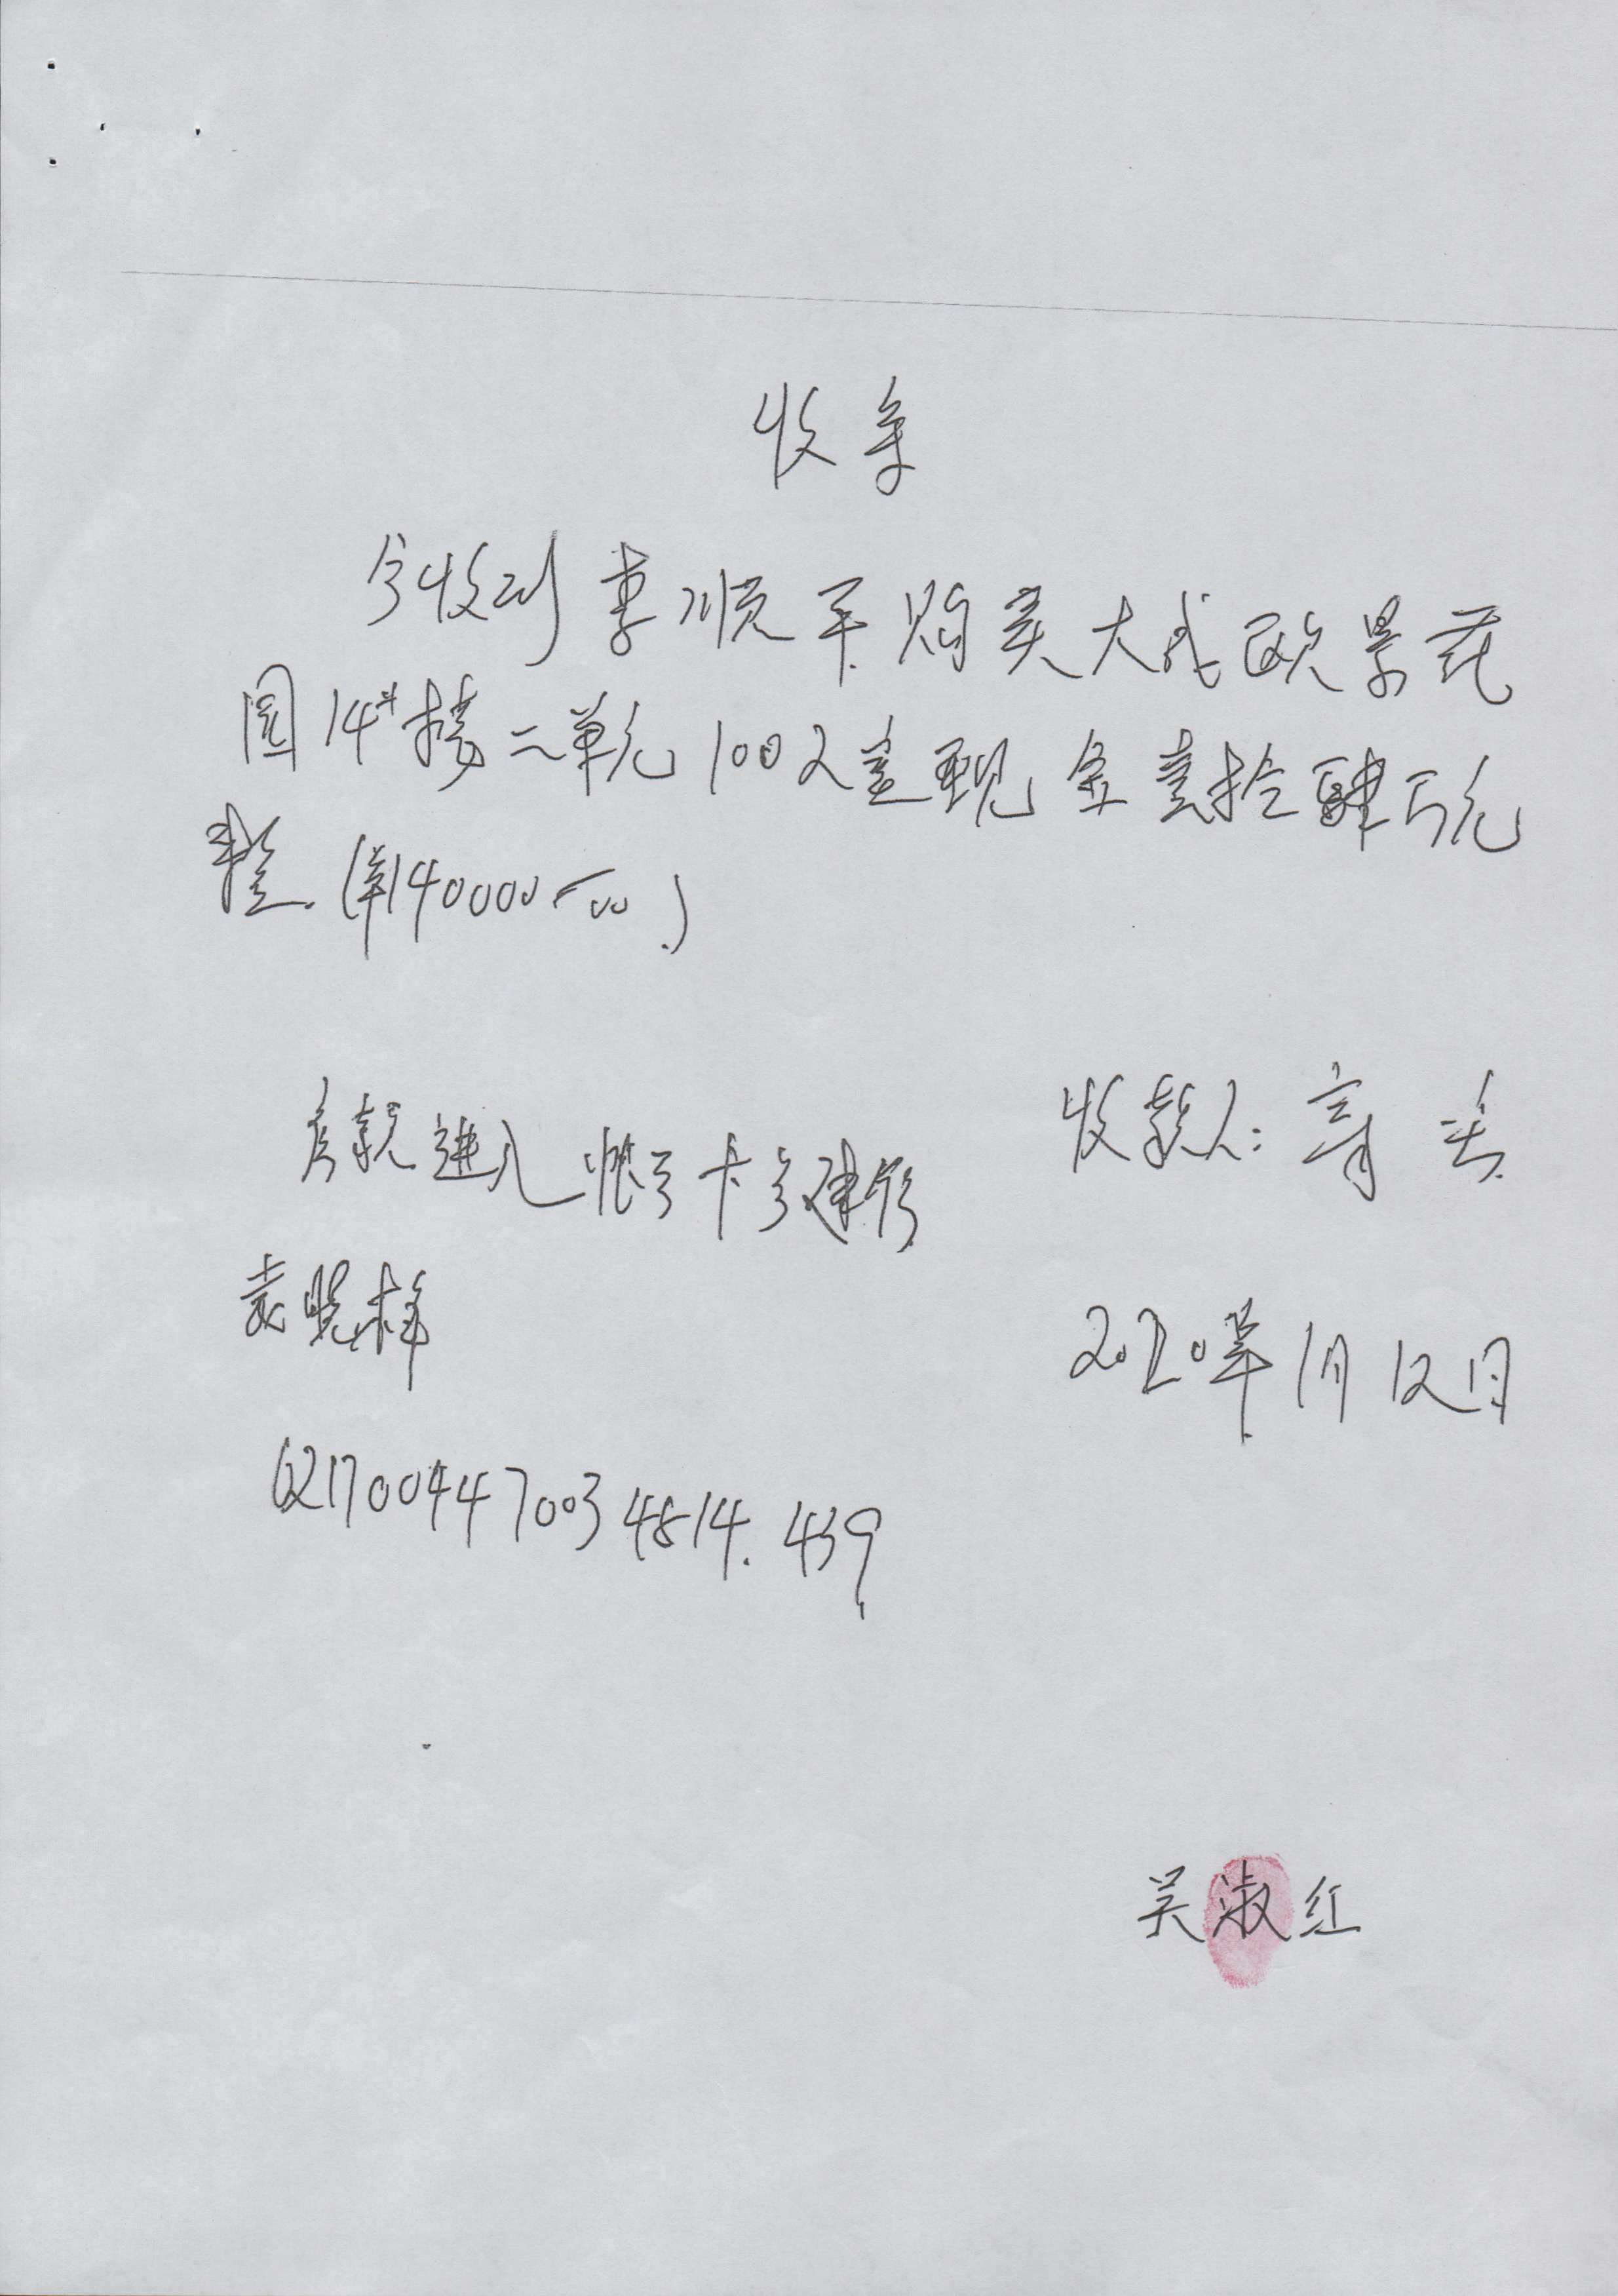 收条
今收到李顺平购买大成欧景花
园14#楼二单元1002室现金壹拾肆万元
整.(¥140000—00.)
收款人:
房款进入帐号卡号建行
袁晓梅
2020年1月12日
6217004470034814.439
吴淑红